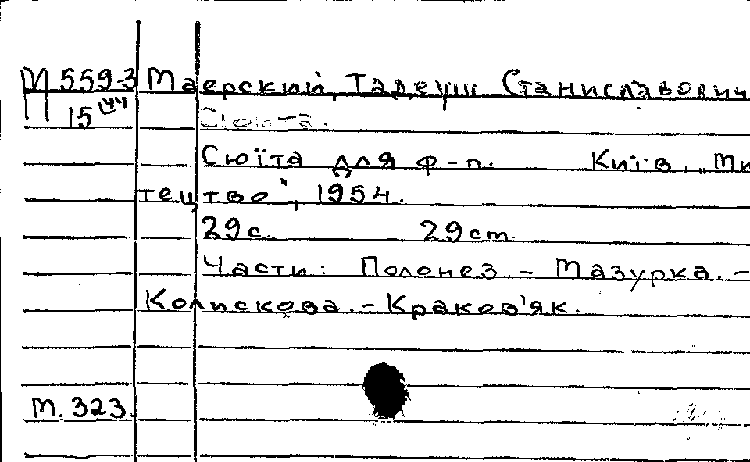 М 559-3 Маерский, Тадеуш Станиславович
П 15
Сюита.
Сюїта для ф-п. Київ, „Ми
тецтво", 1954.
29 с. 29 cm
Части: Полонез – Мазурка. –
Колискова. – Краков'як.
М. 323.